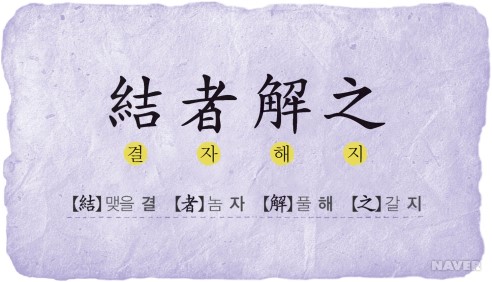 結者解之
결 자 해 지
【結】맺을 결 【者】놈 자 【解】풀 해 【之】갈 지
NAVER